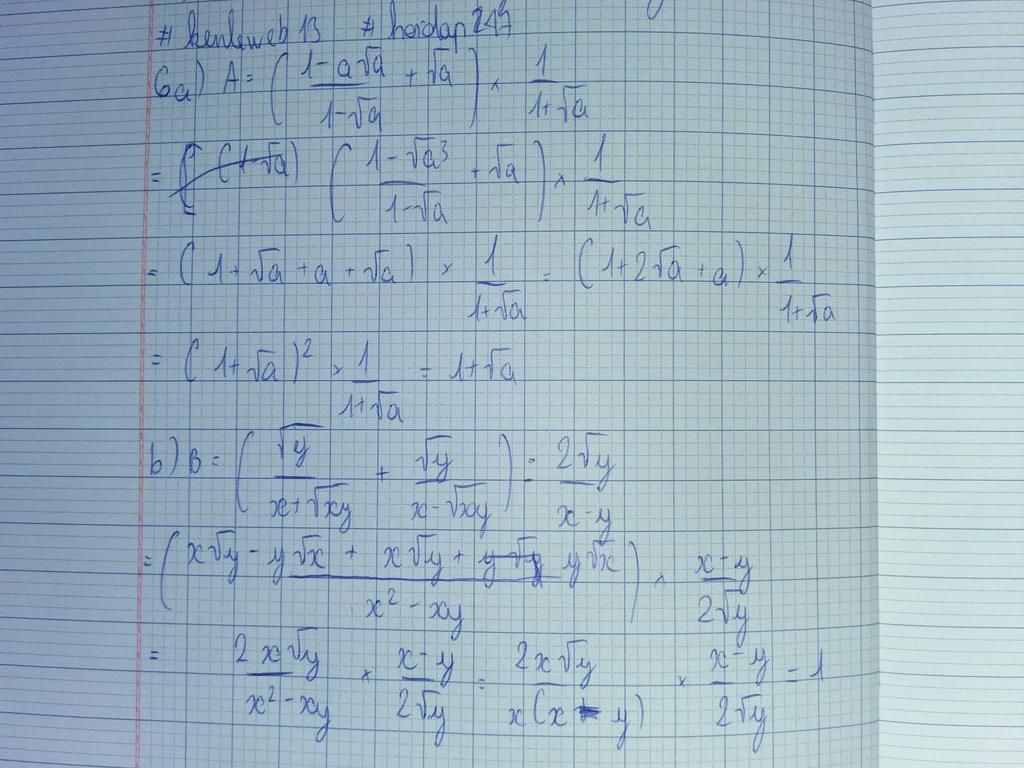 # kenleweb 13 # hoidap247
6a) A = ( (1 - a√a)/(1 - √a) + √a ) × 1/(1 + √a)
= ( (1 - √a³)/(1 - √a) + √a ) × 1/(1 + √a)
= ( 1 + √a + a + √a ) × 1/(1 + √a) = ( 1 + 2√a + a ) × 1/(1 + √a)
= ( 1 + √a )² × 1/(1 + √a) = 1 + √a
b) B = ( √y/(x + √xy) + √y/(x - √xy) ) : 2√y/(x - y)
= ( (x√y - y√x + x√y + y√x)/(x² - xy) ) × (x - y)/(2√y)
= 2x√y/(x² - xy) × (x - y)/(2√y) = 2x√y/(x(x - y)) × (x - y)/(2√y) = 1